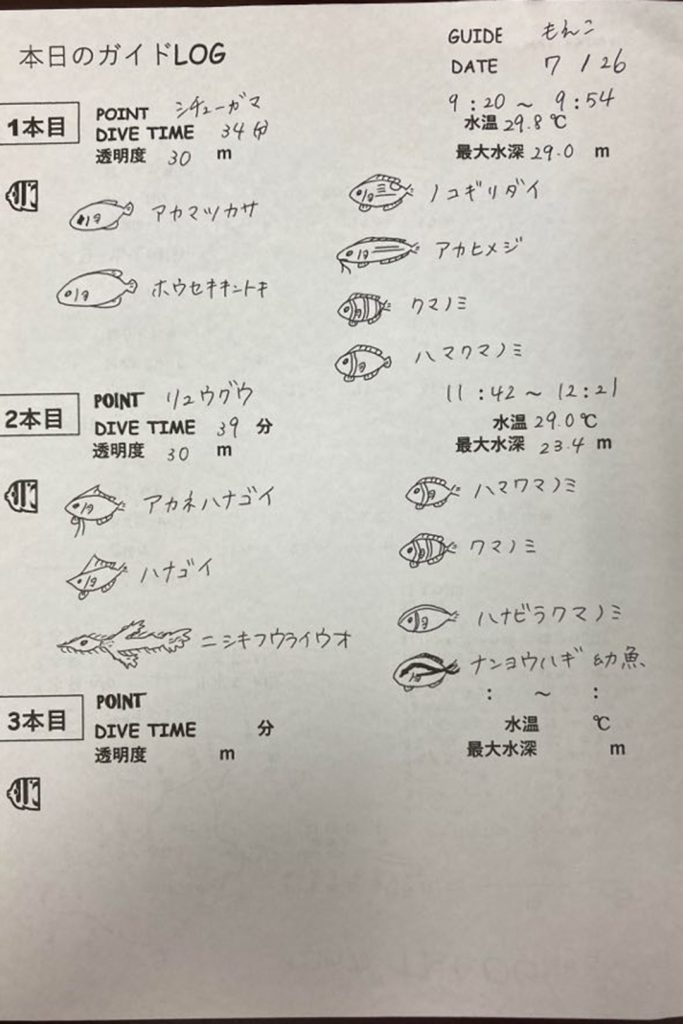 本日のガイドLOG
GUIDE もんこ
DATE 7 / 26
1本目
POINT シチューガマ
9:20 ~ 9:54
DIVE TIME 34分
水温 29.8℃
透明度 30 m
最大水深 29.0 m
アカマツカサ
ノコギリダイ
ホウセキキントキ
アカヒメジ
クマノミ
ハマクマノミ
2本目
POINT リュウグウ
11:42 ~ 12:21
DIVE TIME 39 分
水温 29.0℃
透明度 30 m
最大水深 23.4 m
アカネハナゴイ
ハマクマノミ
ハナゴイ
クマノミ
ニシキフウライウオ
ハナビラクマノミ
ナンヨウハギ 幼魚
3本目
POINT
: ~ :
DIVE TIME 分
水温 ℃
透明度 m
最大水深 m